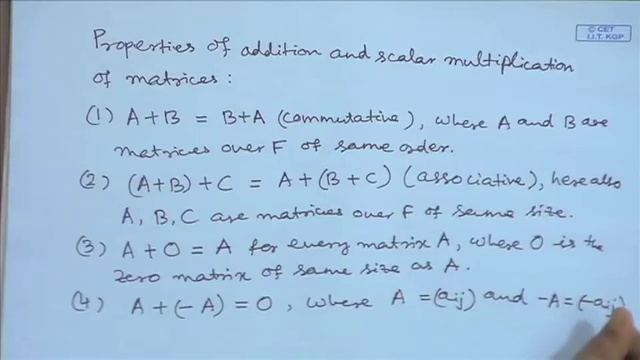 © CET
I.I.T. KGP
Properties of addition and scalar multiplication
of matrices:
(1) A+B = B+A (commutative), where A and B are
matrices over F of same order.
(2) (A+B)+C = A+(B+C) (associative), here also
A, B, C are matrices over F of same size.
(3) A+O = A for every matrix A, where O is the
zero matrix of same size as A.
(4) A+(-A) = O, where A = (aij) and -A = (-aij)